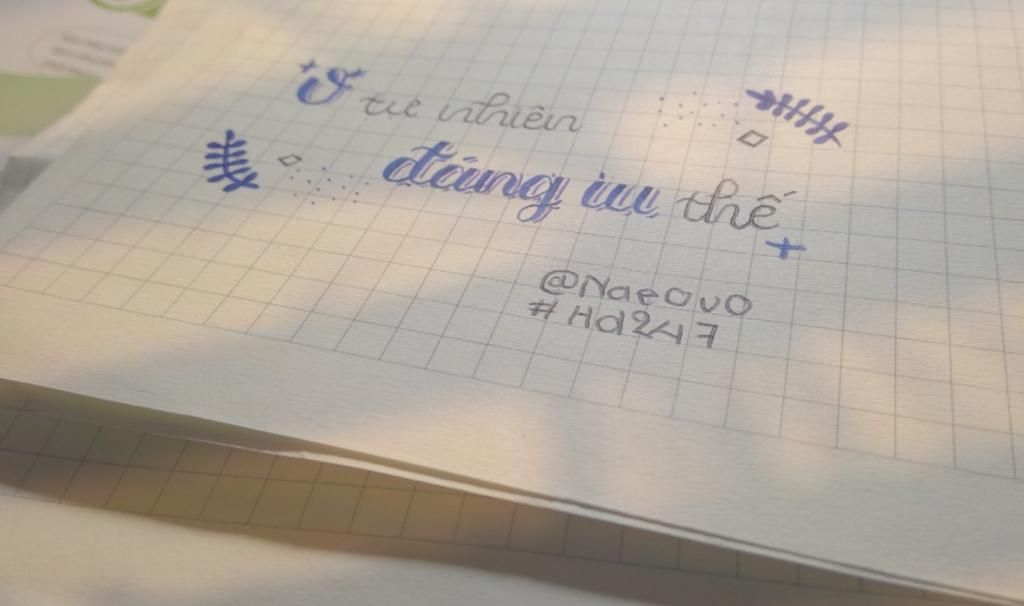 Ơ tự nhiên
đáng iu thế
@NaeOvO
#Hd247